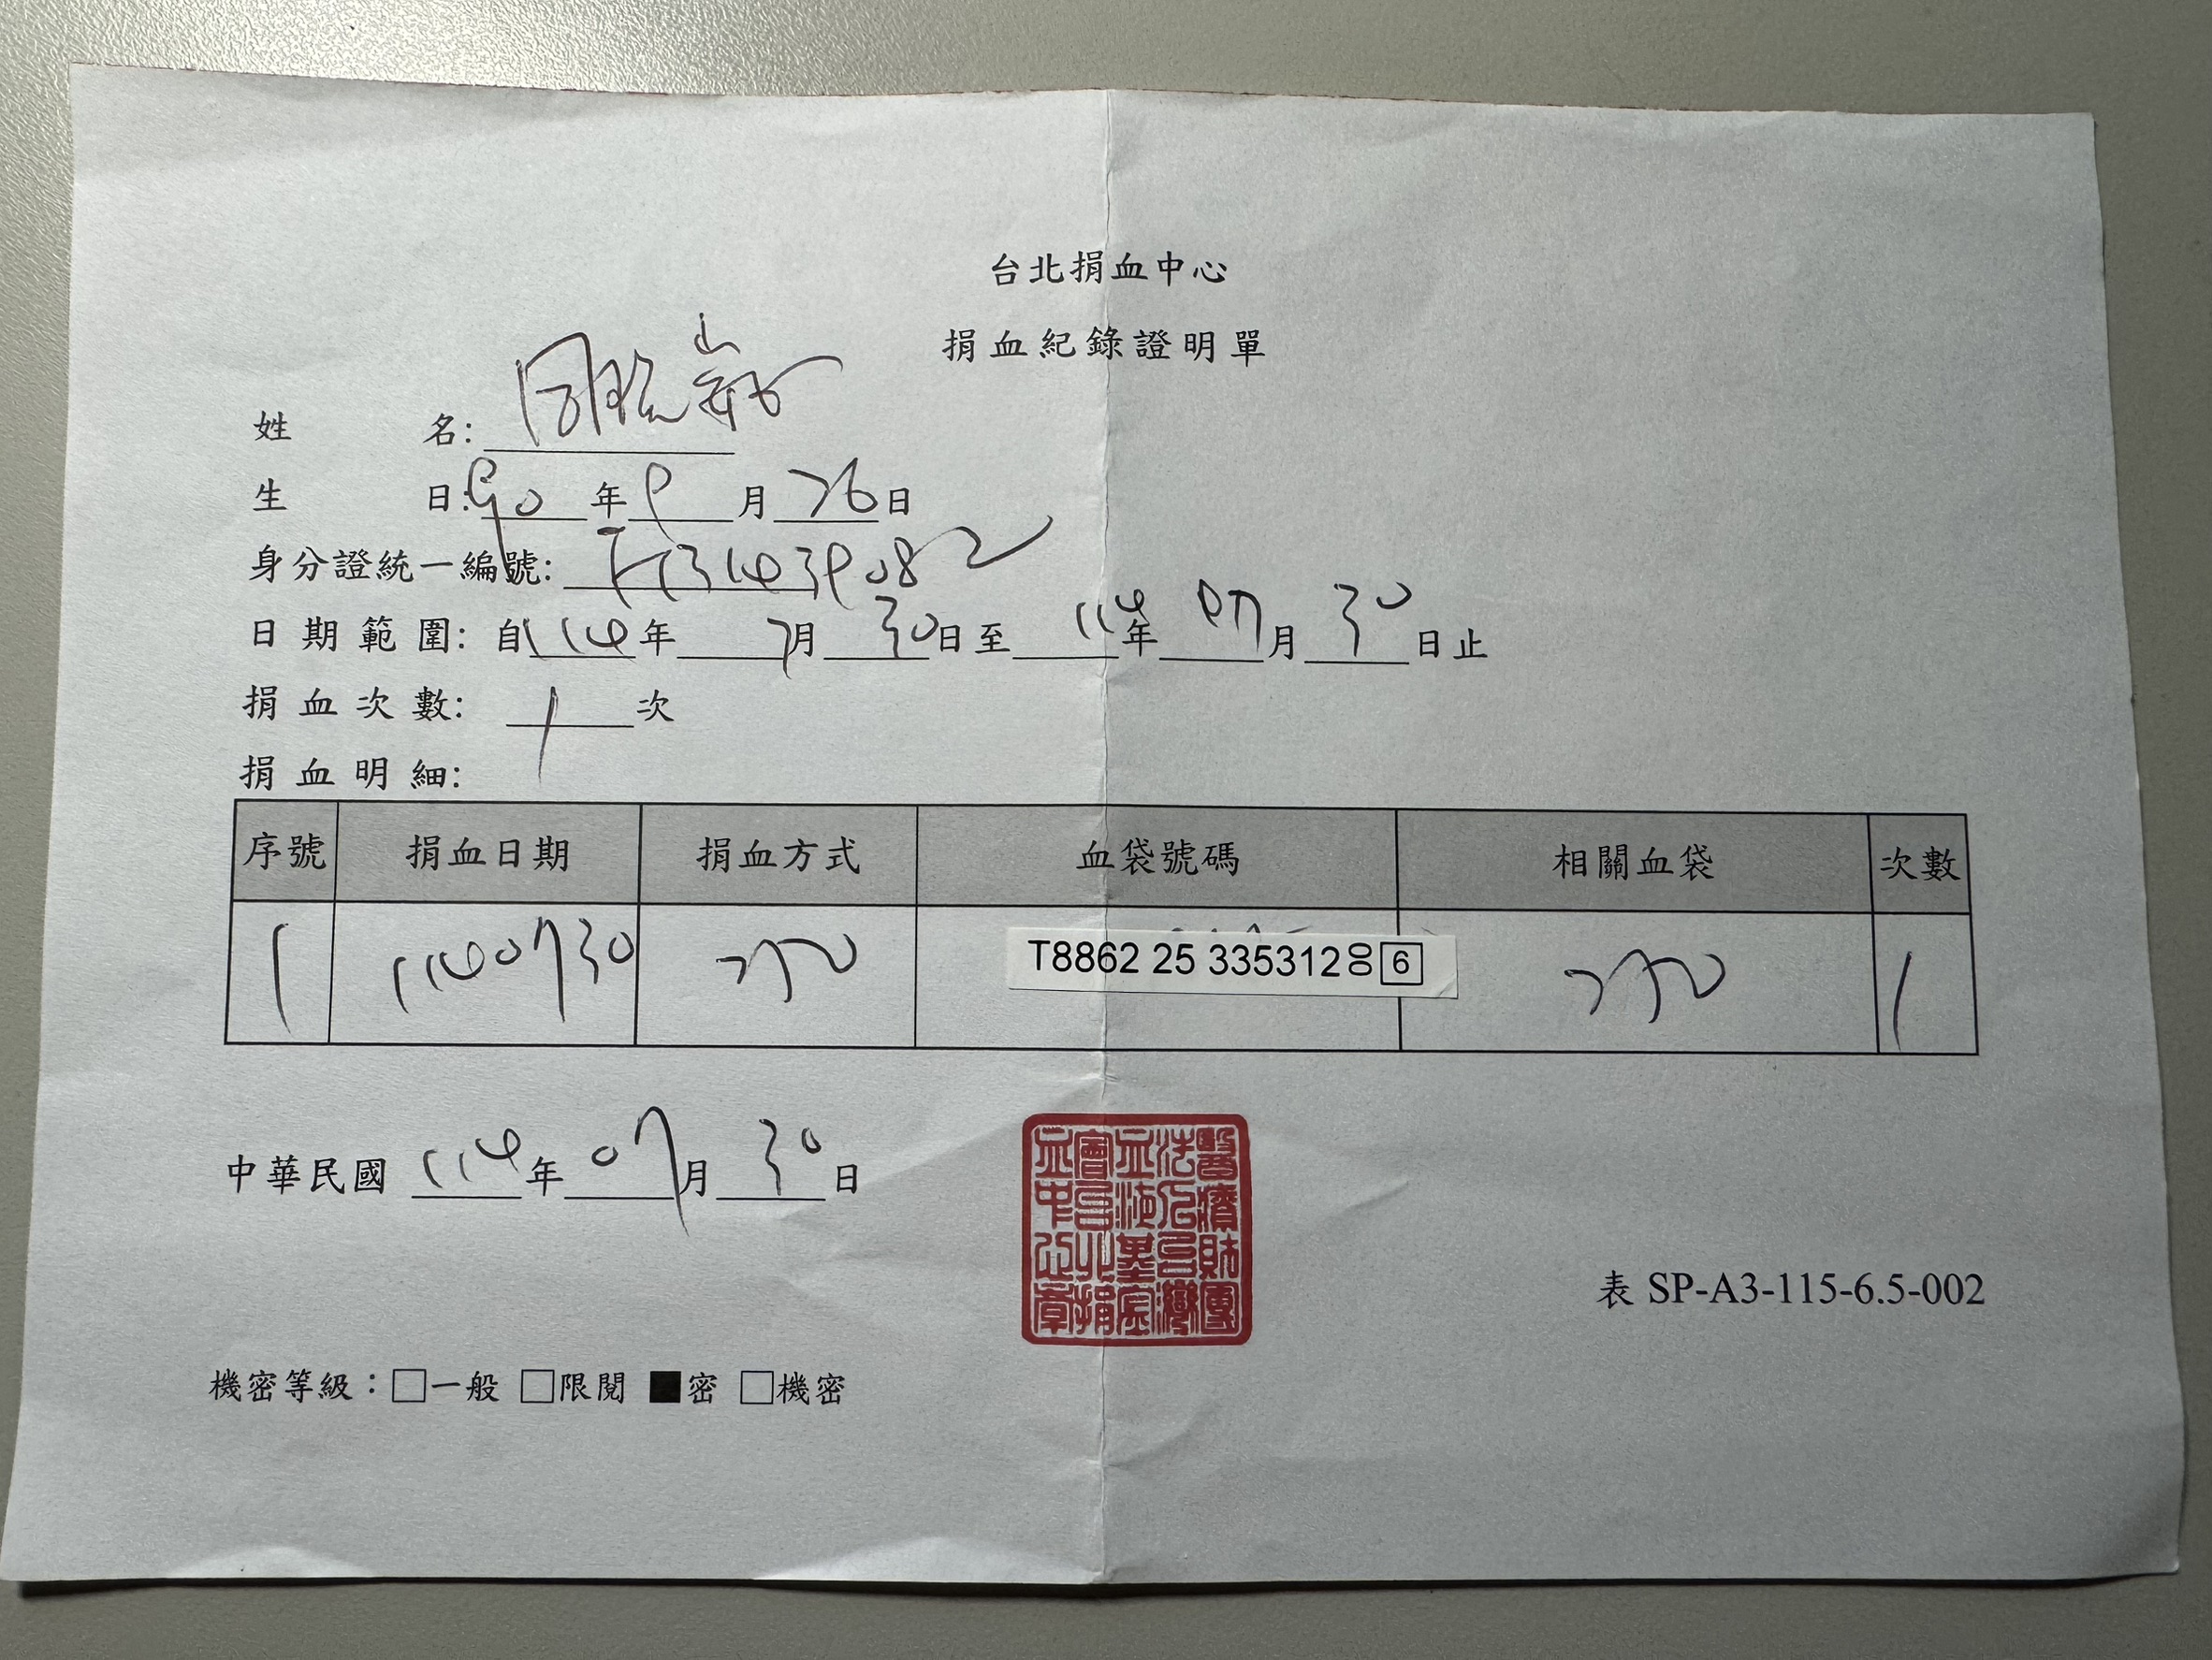 台北捐血中心
捐血紀錄證明單
姓名:
生日: 90 年 9 月 26 日
身分證統一編號:
日期範圍: 自 114 年 7 月 30 日至 114 年 07 月 30 日止
捐血次數: 1 次
捐血明細:
序號 捐血日期 捐血方式 血袋號碼 相關血袋 次數
1 1140730 250 T8862 25 335312 00 6 250 1
中華民國 114 年 07 月 30 日
表 SP-A3-115-6.5-002
機密等級：□一般 □限閱 ■密 □機密